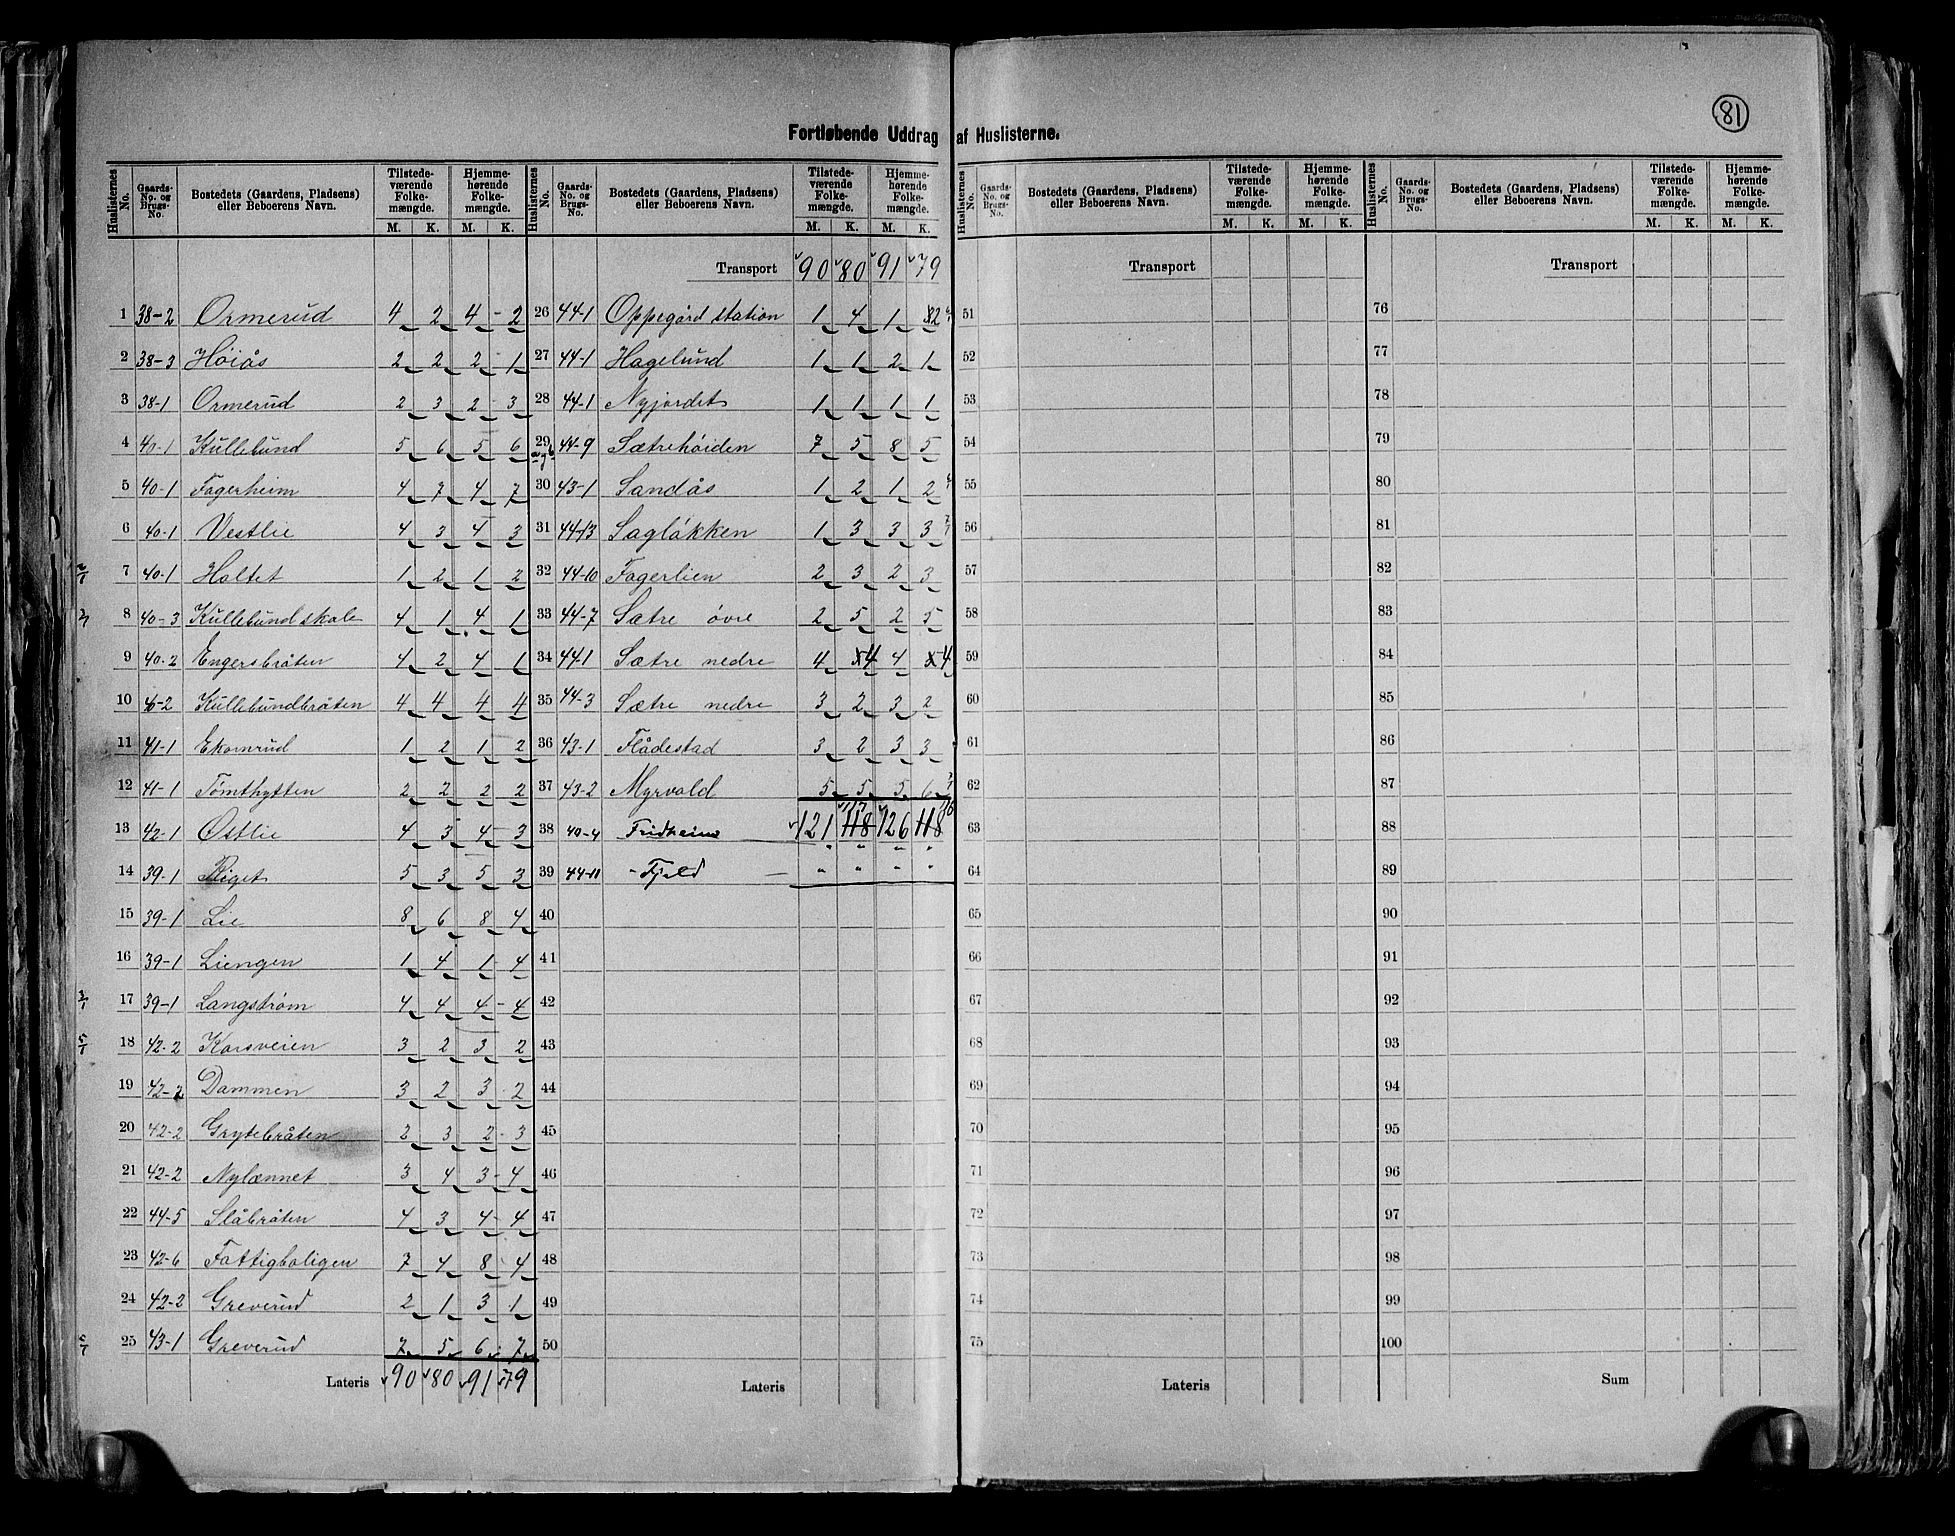 81
Fortløbende Uddrag af Huslisterne.
Huslisternes No. Gaards-No. og Brugs-No. Bostedets (Gaardens, Pladsens) eller Beboerens Navn. Tilstedeværende Folkemængde. M. K. Hjemmehørende Folkemængde. M. K.
1 38-2 Ormerud 4 2 4 - 2
2 38-3 Höiås 2 2 2 1
3 38-1 Ormerud 2 3 2 3
4 40-1 Kullebund 5 6 5 6
5 40-1 Fagerheim 4 7 4 7
6 40-1 Vestlie 4 3 4 3
7 40-1 Holtet 1 2 1 2
8 40-3 Kullebund skole 4 1 4 1
9 40-2 Engersbråten 4 2 4 1
10 40-2 Kullebundbråten 4 4 4 4
11 41-1 Ekornrud 1 2 1 2
12 41-1 Tömthytten 2 2 2 2
13 42-1 Østlie 4 3 4 - 3
14 39-1 Riget 5 3 5 3
15 39-1 Lie 8 6 8 4
16 39-1 Liengen 1 4 1 - 4
17 39-1 Langström 4 4 4 - 4
18 42-2 Korsveien 3 2 3 2
19 42-2 Dammen 3 2 3 2
20 42-2 Grytebråten 2 3 2 - 3
21 42-2 Nylænnet 3 4 3 - 4
22 44-5 Slåbråten 4 3 4 - 4
23 42-6 Fattigboligen 7 4 8 4
24 42-2 Greverud 2 1 3 1
25 43-1 Greverud 7 5 6 7
Lateris 90 80 91 79
Huslisternes No. Gaards-No. og Brugs-No. Bostedets (Gaardens, Pladsens) eller Beboerens Navn. Tilstedeværende Folkemængde. M. K. Hjemmehørende Folkemængde. M. K.
Transport 90 80 91 79
26 44-1 Oppegård station 1 4 1 2
27 44-1 Hagelund 1 1 2 1
28 44-1 Nyjordet 1 1 1 1
29 44-9 Sætrehöiden 7 5 8 5
30 43-1 Sandås 1 2 1 2
31 44-13 Saglökken 1 3 3 3
32 44-10 Fagerlien 2 3 2 3
33 44-7 Sætre övre 2 5 2 5
34 44-1 Sætre nedre 4 4 4 4
35 44-3 Sætre nedre 3 2 3 2
36 43-1 Flådestad 3 2 3 3
37 43-2 Myrvold 5 5 5 6
117 116
38 40-4 Fridheim 121 118 126 118
39 44-11 - Fjeld — " " " "
40
41
42
43
44
45
46
47
48
49
50
Lateris
Huslisternes No. Gaards-No. og Brugs-No. Bostedets (Gaardens, Pladsens) eller Beboerens Navn. Tilstedeværende Folkemængde. M. K. Hjemmehørende Folkemængde. M. K.
Transport
51
52
53
54
55
56
57
58
59
60
61
62
63
64
65
66
67
68
69
70
71
72
73
74
75
Lateris
Huslisternes No. Gaards-No. og Brugs-No. Bostedets (Gaardens, Pladsens) eller Beboerens Navn. Tilstedeværende Folkemængde. M. K. Hjemmehørende Folkemængde. M. K.
Transport
76
77
78
79
80
81
82
83
84
85
86
87
88
89
90
91
92
93
94
95
96
97
98
99
100
Sum